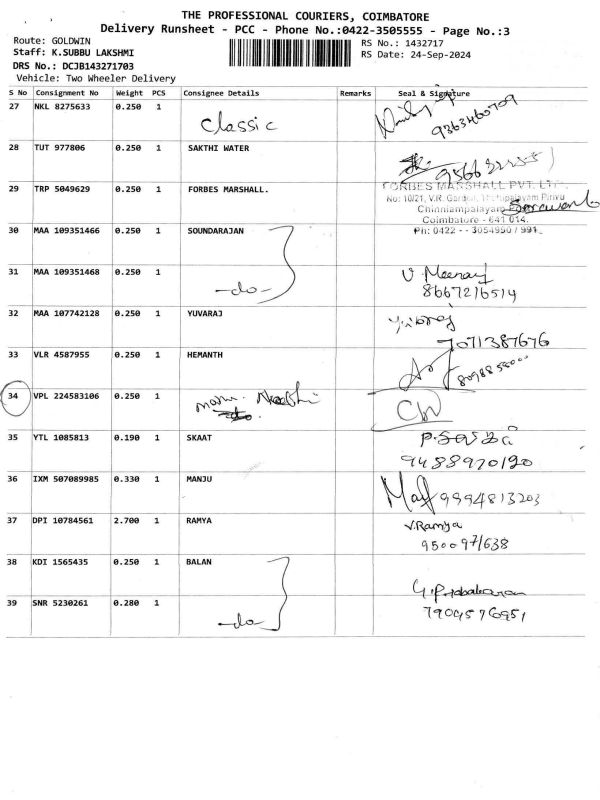 THE PROFESSIONAL COURIERS, COIMBATORE
Delivery Runsheet - PCC - Phone No.:0422-3505555 - Page No.:3
Route: GOLDWIN
RS No.: 1432717
Staff: K.SUBBU LAKSHMI
RS Date: 24-Sep-2024
DRS No.: DCJB143271703
Vehicle: Two Wheeler Delivery
S No Consignment No Weight PCS Consignee Details Remarks Seal & Signature
27 NKL 8275633 0.250 1 Classic 9363460709
28 TUT 977806 0.250 1 SAKTHI WATER
29 TRP 5049629 0.250 1 FORBES MARSHALL.
FORBES MARSHALL PVT. LTD.
Chinniampalayam
Coimbatore - 641 014.
Ph: 0422 - 3054950 / 991
30 MAA 109351466 0.250 1 SOUNDARAJAN
31 MAA 109351468 0.250 1 -do- V Meeraj
8667216514
32 MAA 107742128 0.250 1 YUVARAJ
7071387676
33 VLR 4587955 0.250 1 HEMANTH
34 VPL 224583106 0.250 1
35 YTL 1085813 0.190 1 SKAAT
9488970190
36 IXM 507089985 0.330 1 MANJU 9994813203
37 DPI 10784561 2.700 1 RAMYA V.Ramya
9500971638
38 KDI 1565435 0.250 1 BALAN
39 SNR 5230261 0.280 1 -do- G.Prabakaran
7904576951